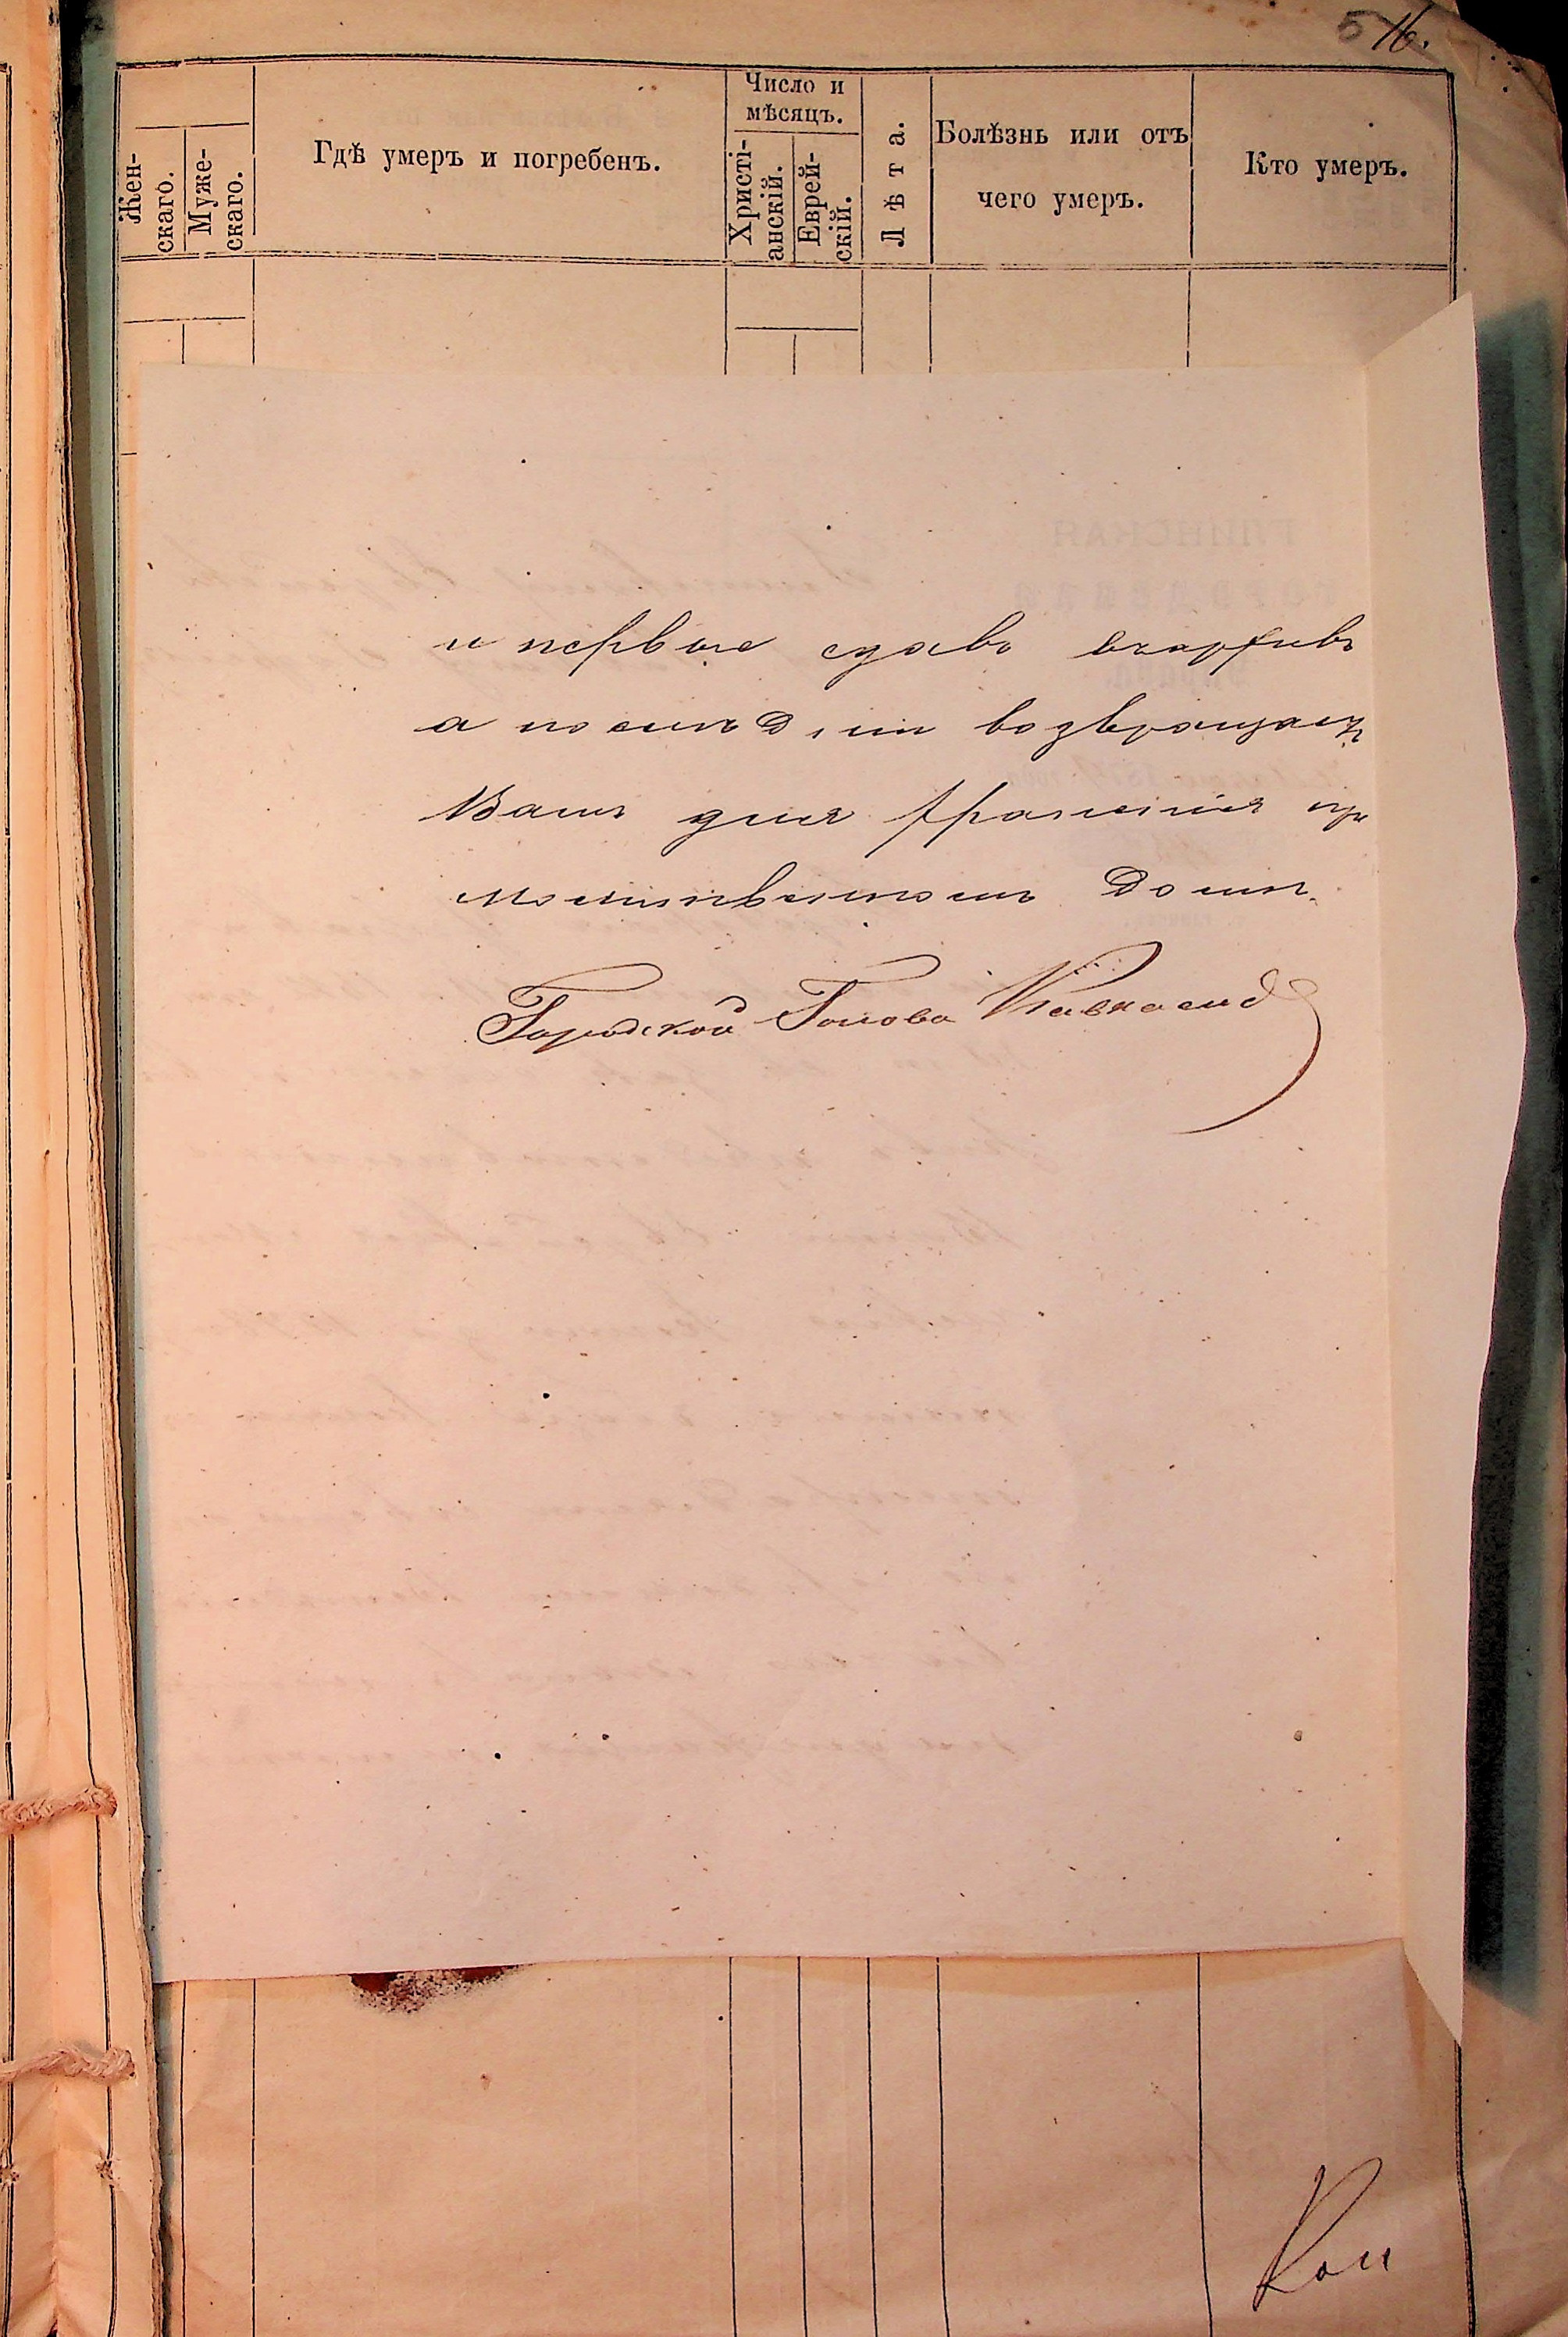 16.
Жен-
скаго.
Муже-
скаго.
Гдѣ умеръ и погребенъ.
Число и
мѣсяцъ.
Христі-
анскій.
Еврей-
скій.
Лѣта.
Болѣзнь или отъ
чего умеръ.
Кто умеръ.
и первые сдавъ вархивъ
а послѣднія возвращаетъ
Вамъ для храненія при
молитвенномъ домѣ.
Городской Голова